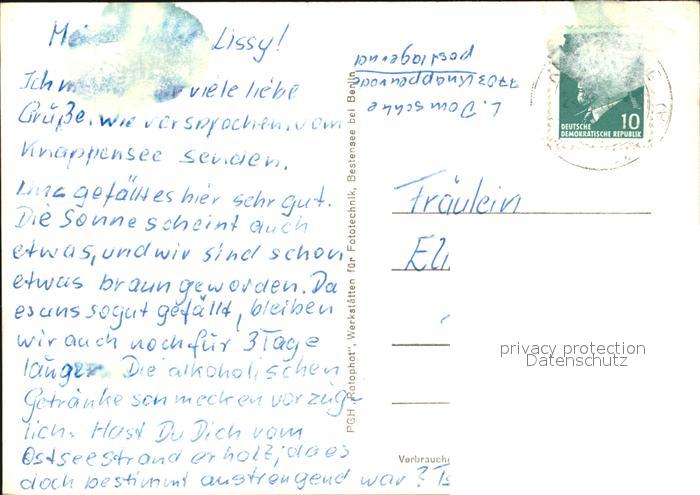 Lissy!
Ich viele liebe
Grüße, wie versprochen, vom
Knappensee senden.
Uns gefällt es hier sehr gut.
Die Sonne scheint auch
etwas, und wir sind schon
etwas braun geworden. Da
es uns so gut gefällt, bleiben
wir auch noch für 3 Tage
länger. Die alkoholischen
Getränke schmecken vorzüg-
lich. Hast Du Dich vom
Ostseestrand erholt, da es
doch bestimmt anstrengend war?
L. Domschke
7703 Knappenrode
postlagernd
PGH „Rotophot", Werkstätten für Fototechnik, Bestensee bei Berlin
10
DEUTSCHE
DEMOKRATISCHE REPUBLIK
Fräulein
privacy protection
Datenschutz
Verbrauche